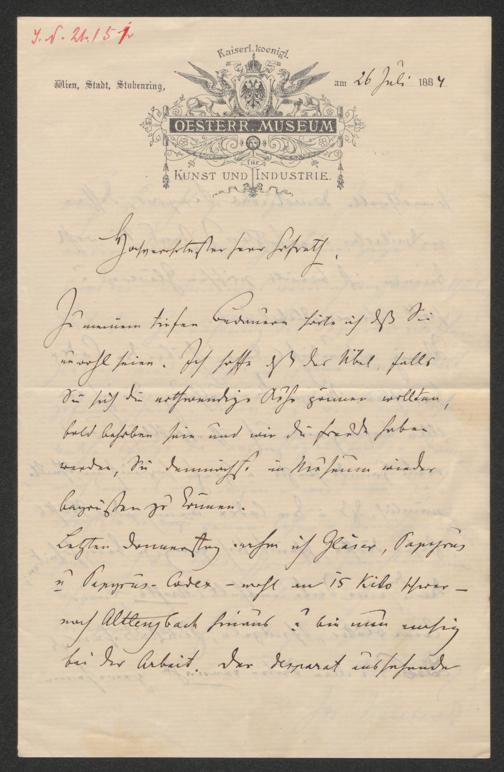 Kaiserl. koenigl.
Wien, Stadt, Stubenring, am 26 Juli 1884
OESTERR. MUSEUM
FÜR
KUNST UND INDUSTRIE.
Hochverehrtester Herr Hofrath,
Zu meinem tiefen Bedauern hörte ich dß Sie
unwohl seien. Ich hoffe dß das Übel, falls
Sie sich die nothwendige Ruhe gönnen wollten,
bald behoben sein und wir die Freude haben
werden, Sie demnächst im Museum wieder
begrüßen zu können.
Letzten Donnerstag nahm ich Gläser, Papyrus
u Papyrus-Codex – wohl an 15 Kilo schwer –
nach Altlengbach hinaus u bin nun ruhig
bei der Arbeit. Der desparat aussehende